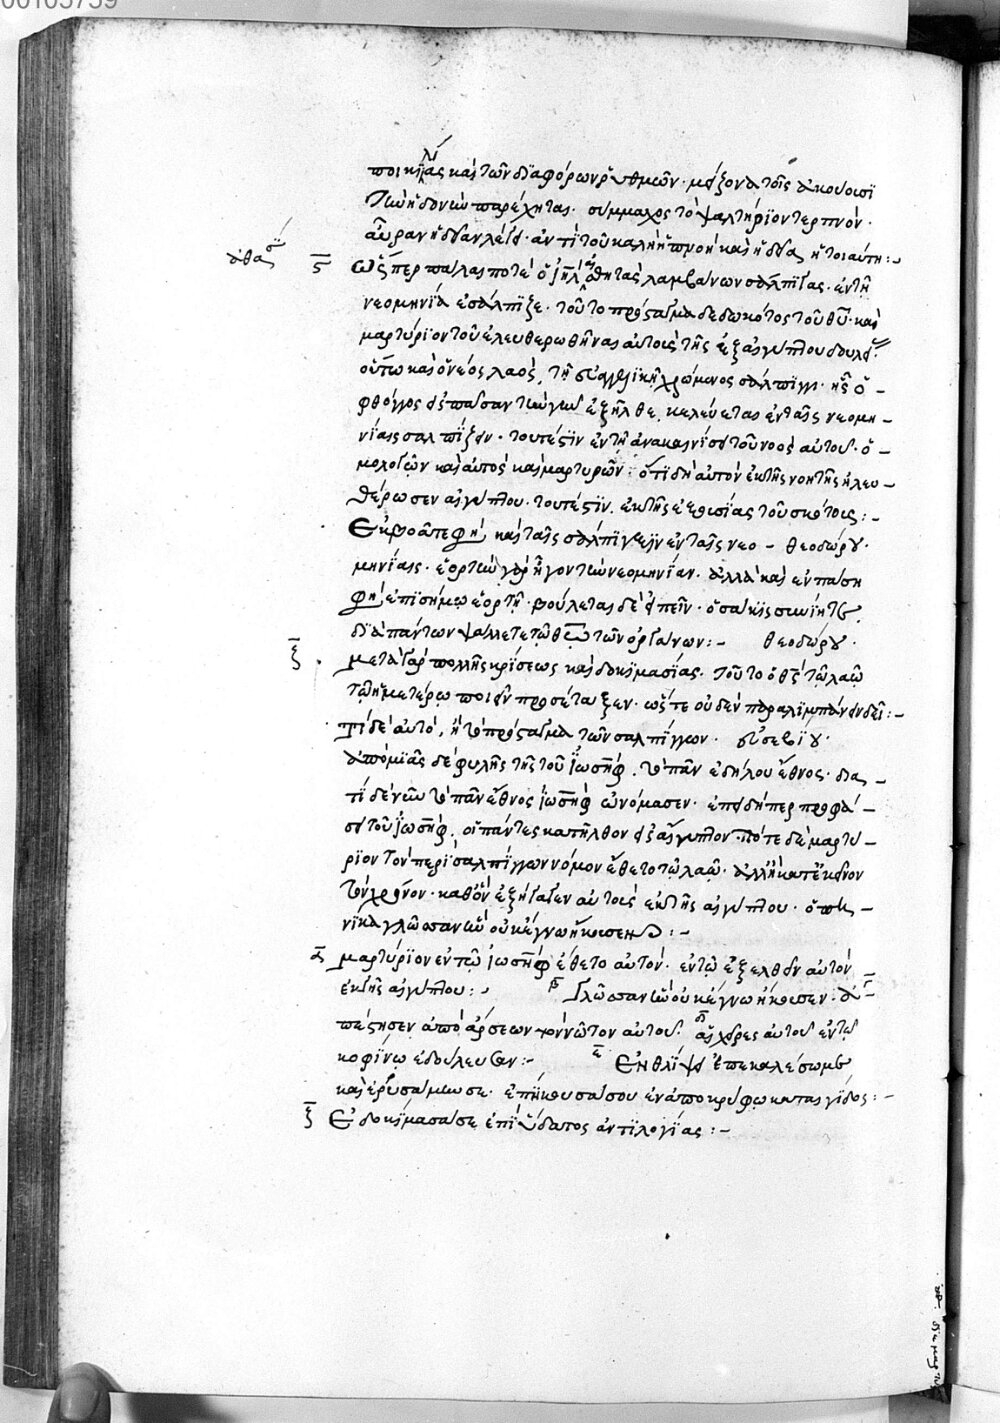 00105759
ποικιλίας καὶ τῶν διαφόρων ῥυθμῶν· μείζονα τοῖς ἀκούουσι
τὴν ἡδονὴν παρέχηται· σύμμαχος τὸ ψαλτήριον τερπνόν·
αὔραν ἡδεῖαν λέγει· ἀντὶ τοῦ καλὴ ἡ πνοὴ καὶ ἡδεῖα ἡ τοιαύτη:-
ἀθανασίου ϛ ὥσπερ πάλαι ποτὲ ὁ ἰηλ αἰσθητὰς λαμβάνων σάλπιγγας· ἐν τῇ
νεομηνίᾳ ἐσάλπιζε· τοῦτο πρόσταγμα δεδωκότος τοῦ θυ· καὶ
μαρτύριον τοῦ ἐλευθερωθῆναι αὐτοὺς τῆς ἐξ αἰγύπτου δουλείας
οὕτω καὶ ὁ νέος λαός, τῇ εὐαγγελικῇ χρώμενος σάλπιγγι· ἧς ὁ-
φθόγγος εἰς πᾶσαν τὴν γῆν ἐξῆλθε· κελεύεται ἐν ταῖς νεομη-
νίαις σαλπίζειν· τουτέστιν ἐν τῇ ἀνακαινίσει τοῦ νοὸς αὐτοῦ· ὁ-
μολογῶν καὶ αὐτὸς καὶ μαρτυρῶν· ὅτι δὴ αὐτὸν ἐκ τῆς νοητῆς ἠλευ-
θέρωσεν αἰγύπτου· τουτέστιν· ἐκ τῆς ἐξουσίας τοῦ σκότους:-
Ἐκβοᾶτε φησὶ καὶ ταῖς σάλπιγξιν ἐν ταῖς νεο- θεοδώρου·
μηνίαις· ἑορτὴν γὰρ ἦγον τὴν νεομηνίαν· ἀλλὰ καὶ ἐν πάσῃ
φησὶ ἐπισήμῳ ἑορτῇ· βούλεται δὲ εἰπεῖν· ὁσάκις συνίητε,
διὰ πάντων ψάλλετε τῷ θῶ τῶν ὀργάνων:- θεοδώρου·
ζ μετὰ γὰρ πολλῆς κρίσεως καὶ δοκιμασίας· τοῦτο ὁ θς τῷ λαῷ
τῷ ἡμετέρῳ ποιεῖν προσέταξεν· ὥστε οὐδὲν παραλιμπάνειν δεῖ:-
τί δὲ αὐτό, ἢ τὸ πρόσταγμα τῶν σαλπίγγων· εὐσεβίου·
ἀπὸ μιᾶς δὲ φυλῆς τῆς τοῦ ἰωσὴφ, τὸ πᾶν ἐδήλου ἔθνος· δια-
τί δὲ νῦν τὸ πᾶν ἔθνος ἰωσὴφ ὠνόμασεν· ἐπειδήπερ προφά-
σει τοῦ ἰωσὴφ, οἱ πάντες κατῆλθον εἰς αἴγυπτον· πότε δὲ μαρτύ-
ριον τὸν περὶ σαλπίγγων νόμον ἔθετο τῷ λαῷ· ἀλλ' ἢ κατ' ἐκεῖνον
τὸν χρόνον· καθ' ὃν ἐξήγαγεν αὐτοὺς ἐκ τῆς αἰγύπτου· ὁπη-
νίκα γλῶσσαν ἣν οὐκ ἔγνω ἤκουσεν:-
α μαρτύριον ἐν τῷ ἰωσὴφ ἔθετο αὐτόν· ἐν τῷ ἐξελθεῖν αὐτὸν
ἐκ γῆς αἰγύπτου:- β γλῶσσαν ἣν οὐκ ἔγνω ἤκουσεν· γ ἀ-
πέστησεν ἀπὸ ἄρσεων τὸν νῶτον αὐτοῦ· δ αἱ χεῖρες αὐτοῦ ἐν τῷ
κοφίνῳ ἐδούλευσαν:- ε ἐν θλίψει ἐπεκαλέσω με
καὶ ἐρρυσάμην σε· ἐπήκουσά σου ἐν ἀποκρύφῳ καταιγίδος:-
ζ Ἐδοκίμασά σε ἐπὶ ὕδατος ἀντιλογίας:-